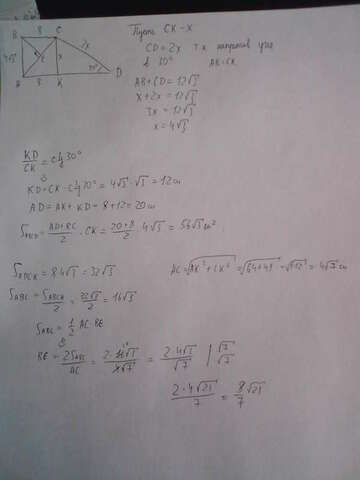 B 8 C
4√3 x 2x
E 30°
A 8 K D
Пусть CK - x
CD = 2x т.к напротив угла
в 30° AB = CK
AB + CD = 12√3
x + 2x = 12√3
3x = 12√3
x = 4√3
KD/CK = ctg 30°
KD = CK · ctg 30° = 4√3 · √3 = 12 см
AD = AK + KD = 8 + 12 = 20 см
S_ABCD = (AD + BC)/2 · CK = (20 + 8)/2 · 4√3 = 56√3 см²
S_ABCK = 8·4√3 = 32√3
AC = √(AK² + CK²) = √(64 + 48) = √112 = 4√7 см
S_ABC = S_ABCK/2 = 32√3/2 = 16√3
S_ABC = 1/2 AC · BE
BE = 2S_ABC/AC = 2·16√3/4√7 = 2·4√3/√7 | √7/√7
2·4√21/7 = 8/7 √21